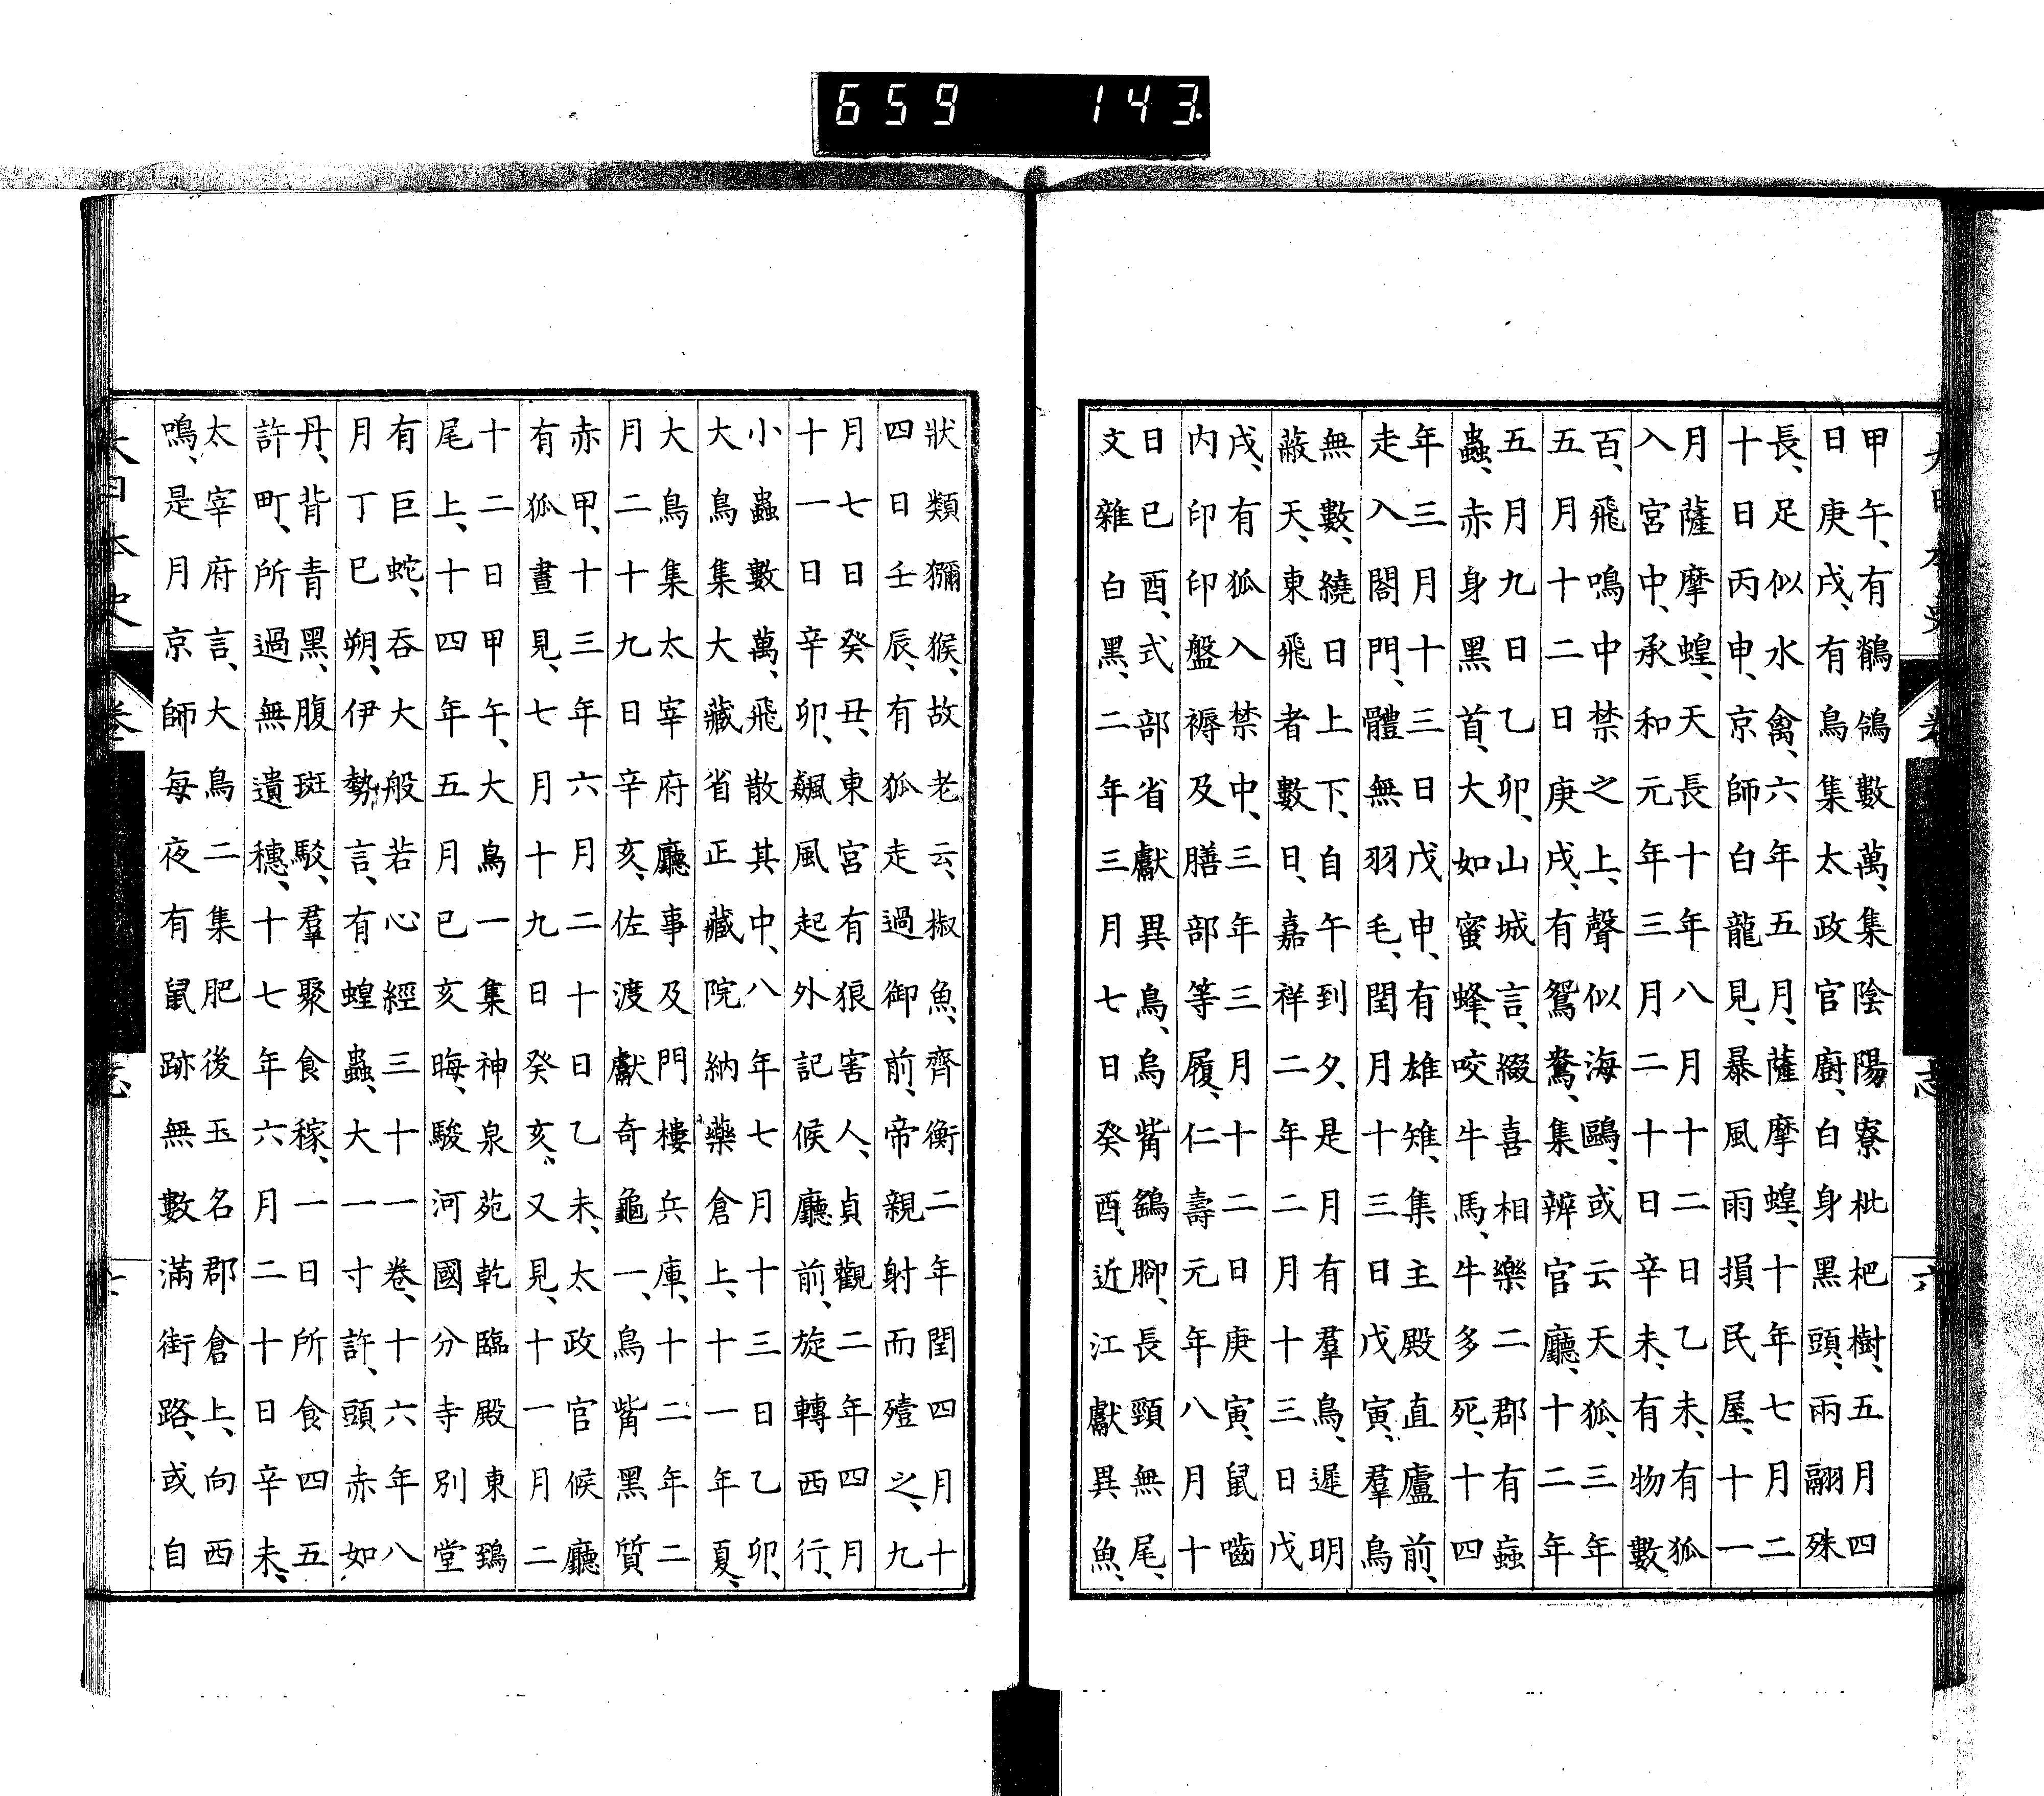 659 143
甲午、有鶺鴒數萬、集陰陽寮枇杷樹、五月四
日庚戌、有鳥集太政官廚、白身黑頭、兩翮殊
長、足似水禽、六年五月、薩摩蝗、十年七月二
十日丙申、京師白龍見、暴風雨損民屋、十一
月薩摩蝗、天長十年八月十二日乙未、有狐
入宮中、承和元年三月二十日辛未、有物數
百、飛鳴中禁之上、聲似海鷗、或云天狐、三年
五月十二日庚戌、有鴛鴦、集辨官廳、十二年
五月九日乙卯、山城言、綴喜相樂二郡有蝱
蟲、赤身黑首、大如蜜蜂、咬牛馬、牛多死、十四
年三月十三日戊申、有雄雉、集主殿直廬前、
走入閤門、體無羽毛、閏月十三日戊寅、羣鳥
無數、繞日上下、自午到夕、是月有羣鳥、遲明
蔽天、東飛者數日、嘉祥二年二月十三日戊
戌、有狐入禁中、三年三月十二日庚寅、鼠嚙
內印印盤褥及膳部等履、仁壽元年八月十
日已酉、式部省獻異鳥、烏觜鷂腳、長頸無尾、
文雜白黑、二年三月七日癸酉、近江獻異魚、
大日本史 志 六
狀類獼猴、故老云、椒魚、齊衡二年閏四月十
四日壬辰、有狐走過御前、帝親射而殪之、九
月七日癸丑、東宮有狼害人、貞觀二年四月
十一日辛卯、飆風起外記候廳前、旋轉西行、
小蟲數萬、飛散其中、八年七月十三日乙卯、
大鳥集大藏省正藏院納藥倉上、十一年夏、
大鳥集太宰府廳事及門樓兵庫、十二年二
月二十九日辛亥、佐渡獻奇龜一、鳥觜黑質
赤甲、十三年六月二十日乙未、太政官候廳
有狐晝見、七月十九日癸亥、又見、十一月二
十二日甲午、大鳥一集神泉苑乾臨殿東鵄
尾上、十四年五月已亥晦、駿河國分寺別堂
有巨蛇、吞大般若心經三十一卷、十六年八
月丁巳朔、伊勢言、有蝗蟲、大一寸許、頭赤如
丹、背青黑、腹斑駁、羣聚食稼、一日所食四五
許町、所過無遺穗、十七年六月二十日辛未、
太宰府言、大鳥二集肥後玉名郡倉上、向西
鳴、是月京師每夜有鼠跡無數滿街路、或自
大日本史